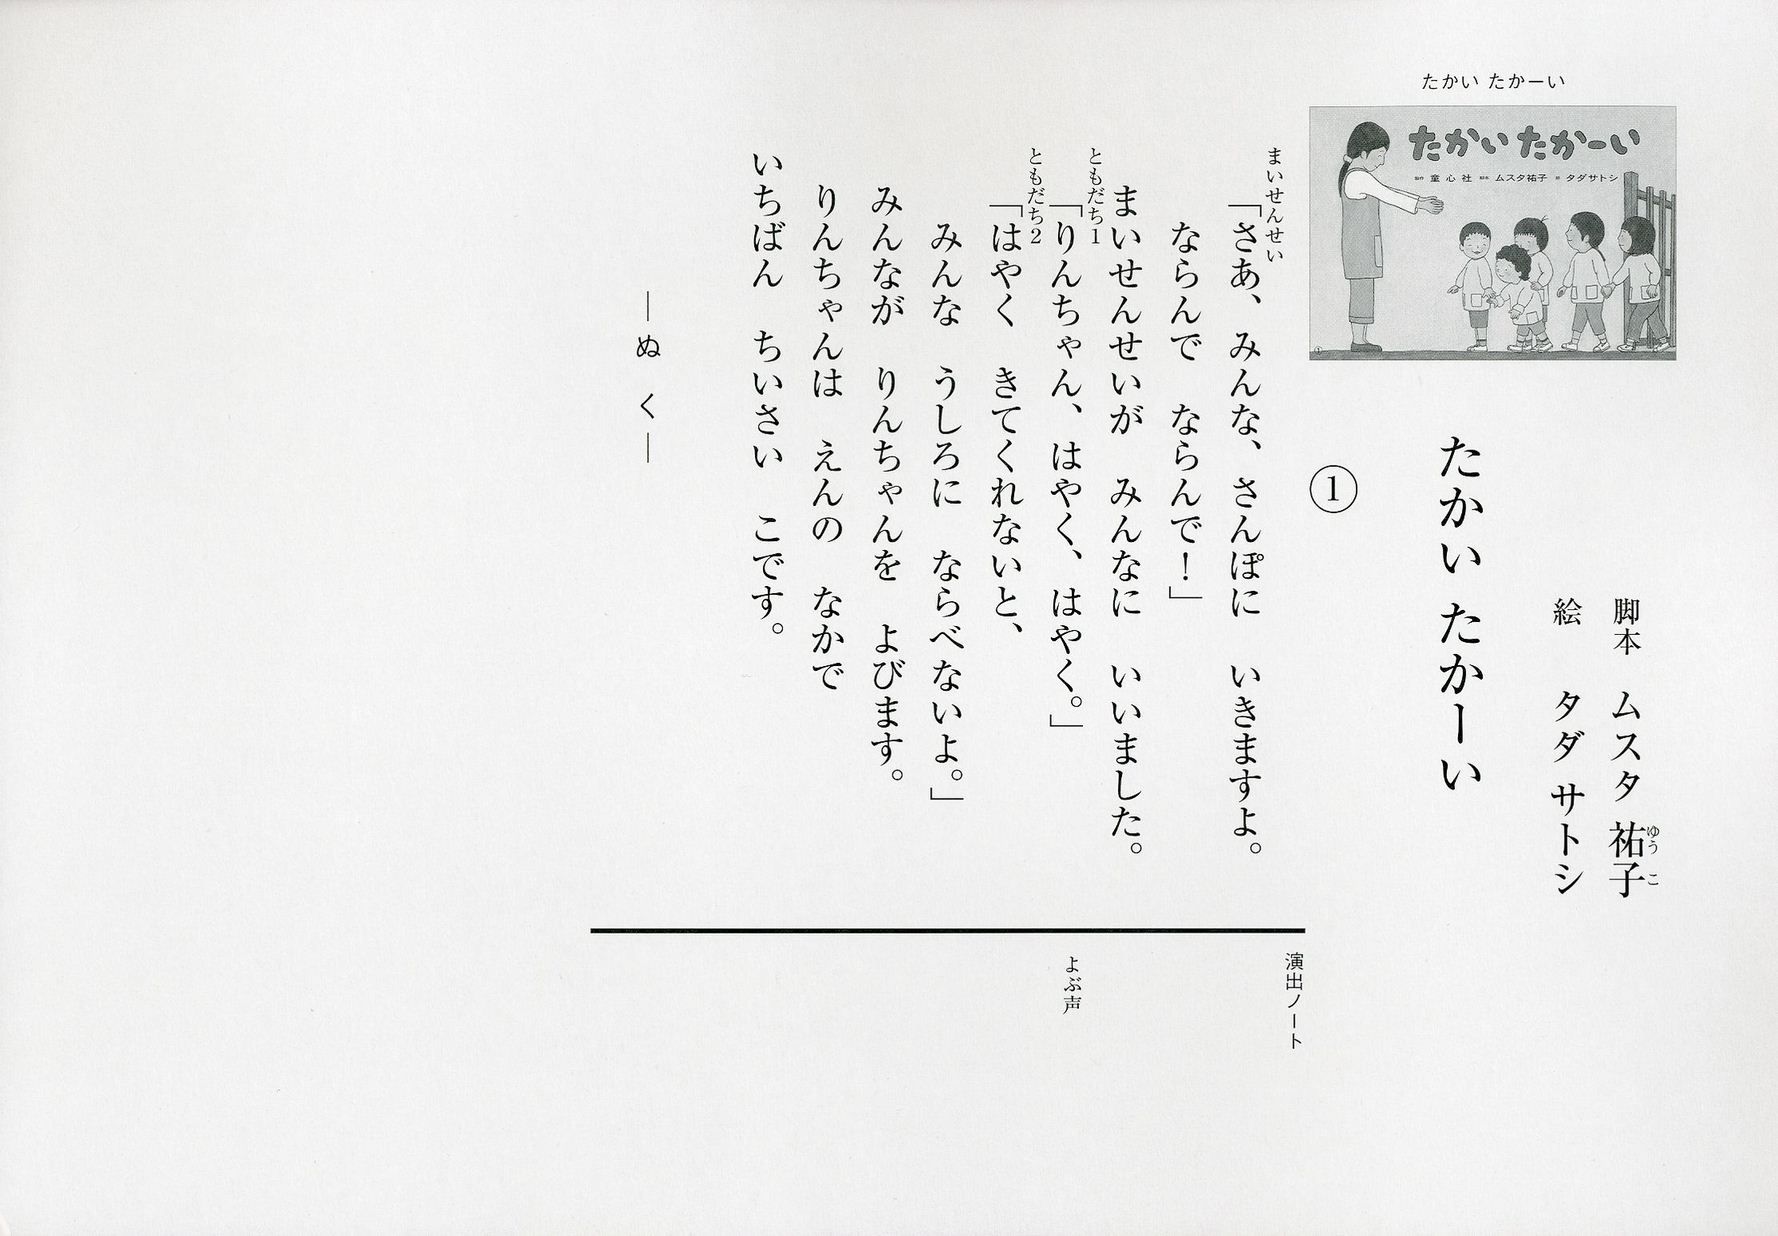 たかい たかーい
たかい たかーい
童心社 ムスタ祐子 タダサトシ
脚本 ムスタ 祐子
ゆうこ
絵 タダ サトシ
たかい たかーい
①
まいせんせい
「さあ、みんな、さんぽに いきますよ。
ならんで ならんで!」
まいせんせいが みんなに いいました。
ともだち1
「りんちゃん、はやく、はやく。」
ともだち2
「はやく きてくれないと、
みんな うしろに ならべないよ。」
みんなが りんちゃんを よびます。
りんちゃんは えんの なかで
いちばん ちいさい こです。
―ぬ く―
演出ノート
よぶ声